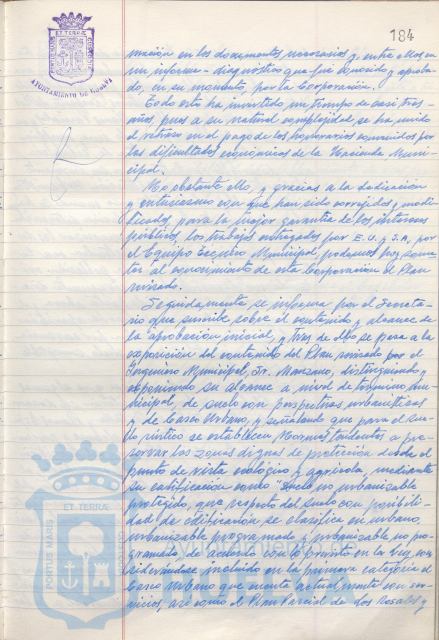 184
AYUNTAMIENTO DE HUELVA
mación en los documentos necesarios y, entre ellos en
un informe-diagnóstico que fué conocido y aproba-
do, en su momento, por la Corporación.
Todo esto ha invertido un tiempo de casi tres
años, pues a su natural complejidad se ha unido
el retraso en el pago de los honorarios convenidos por
las dificultades económicas de la Hacienda Muni-
cipal.
No obstante ello, y gracias a la dedicación
y entusiasmo con que han sido corregidos y modi-
ficados para la mejor garantía de los intereses
públicos los trabajos entregados por E.U.y S.A., por
el Equipo Técnico Municipal, podemos hoy some-
ter al conocimiento de esta Corporación el Plan
revisado.
Seguidamente se informa por el Secreta-
rio que suscribe sobre el contenido y alcance de
la aprobación inicial, y tras de ello se pasa a la
exposición del contenido del Plan revisado por el
Ingeniero Municipal, Sr. Manzano, distinguiendo y
exponiendo su alcance a nivel de término mu-
nicipal, de suelo con perspectivas urbanísticas
y de Casco Urbano, y señalando que para el sue-
lo rústico se establecen Normas tendentes a pre-
servar las zonas dignas de protección desde el
punto de vista ecológico y agrícola, mediante
su calificación como "Suelo no urbanizable
protegido, que respecto del suelo con posibili-
dad de edificación se clasifica en urbano,
urbanizable programado y urbanizable no pro-
gramado, de acuerdo con lo previsto en la Ley, con-
siderándose incluído en la primera categoría el
Casco Urbano que cuenta actualmente con ser-
vicios, así como el Plan Parcial de Los Rosales y
ET TERRAE
PORTUS MARIS